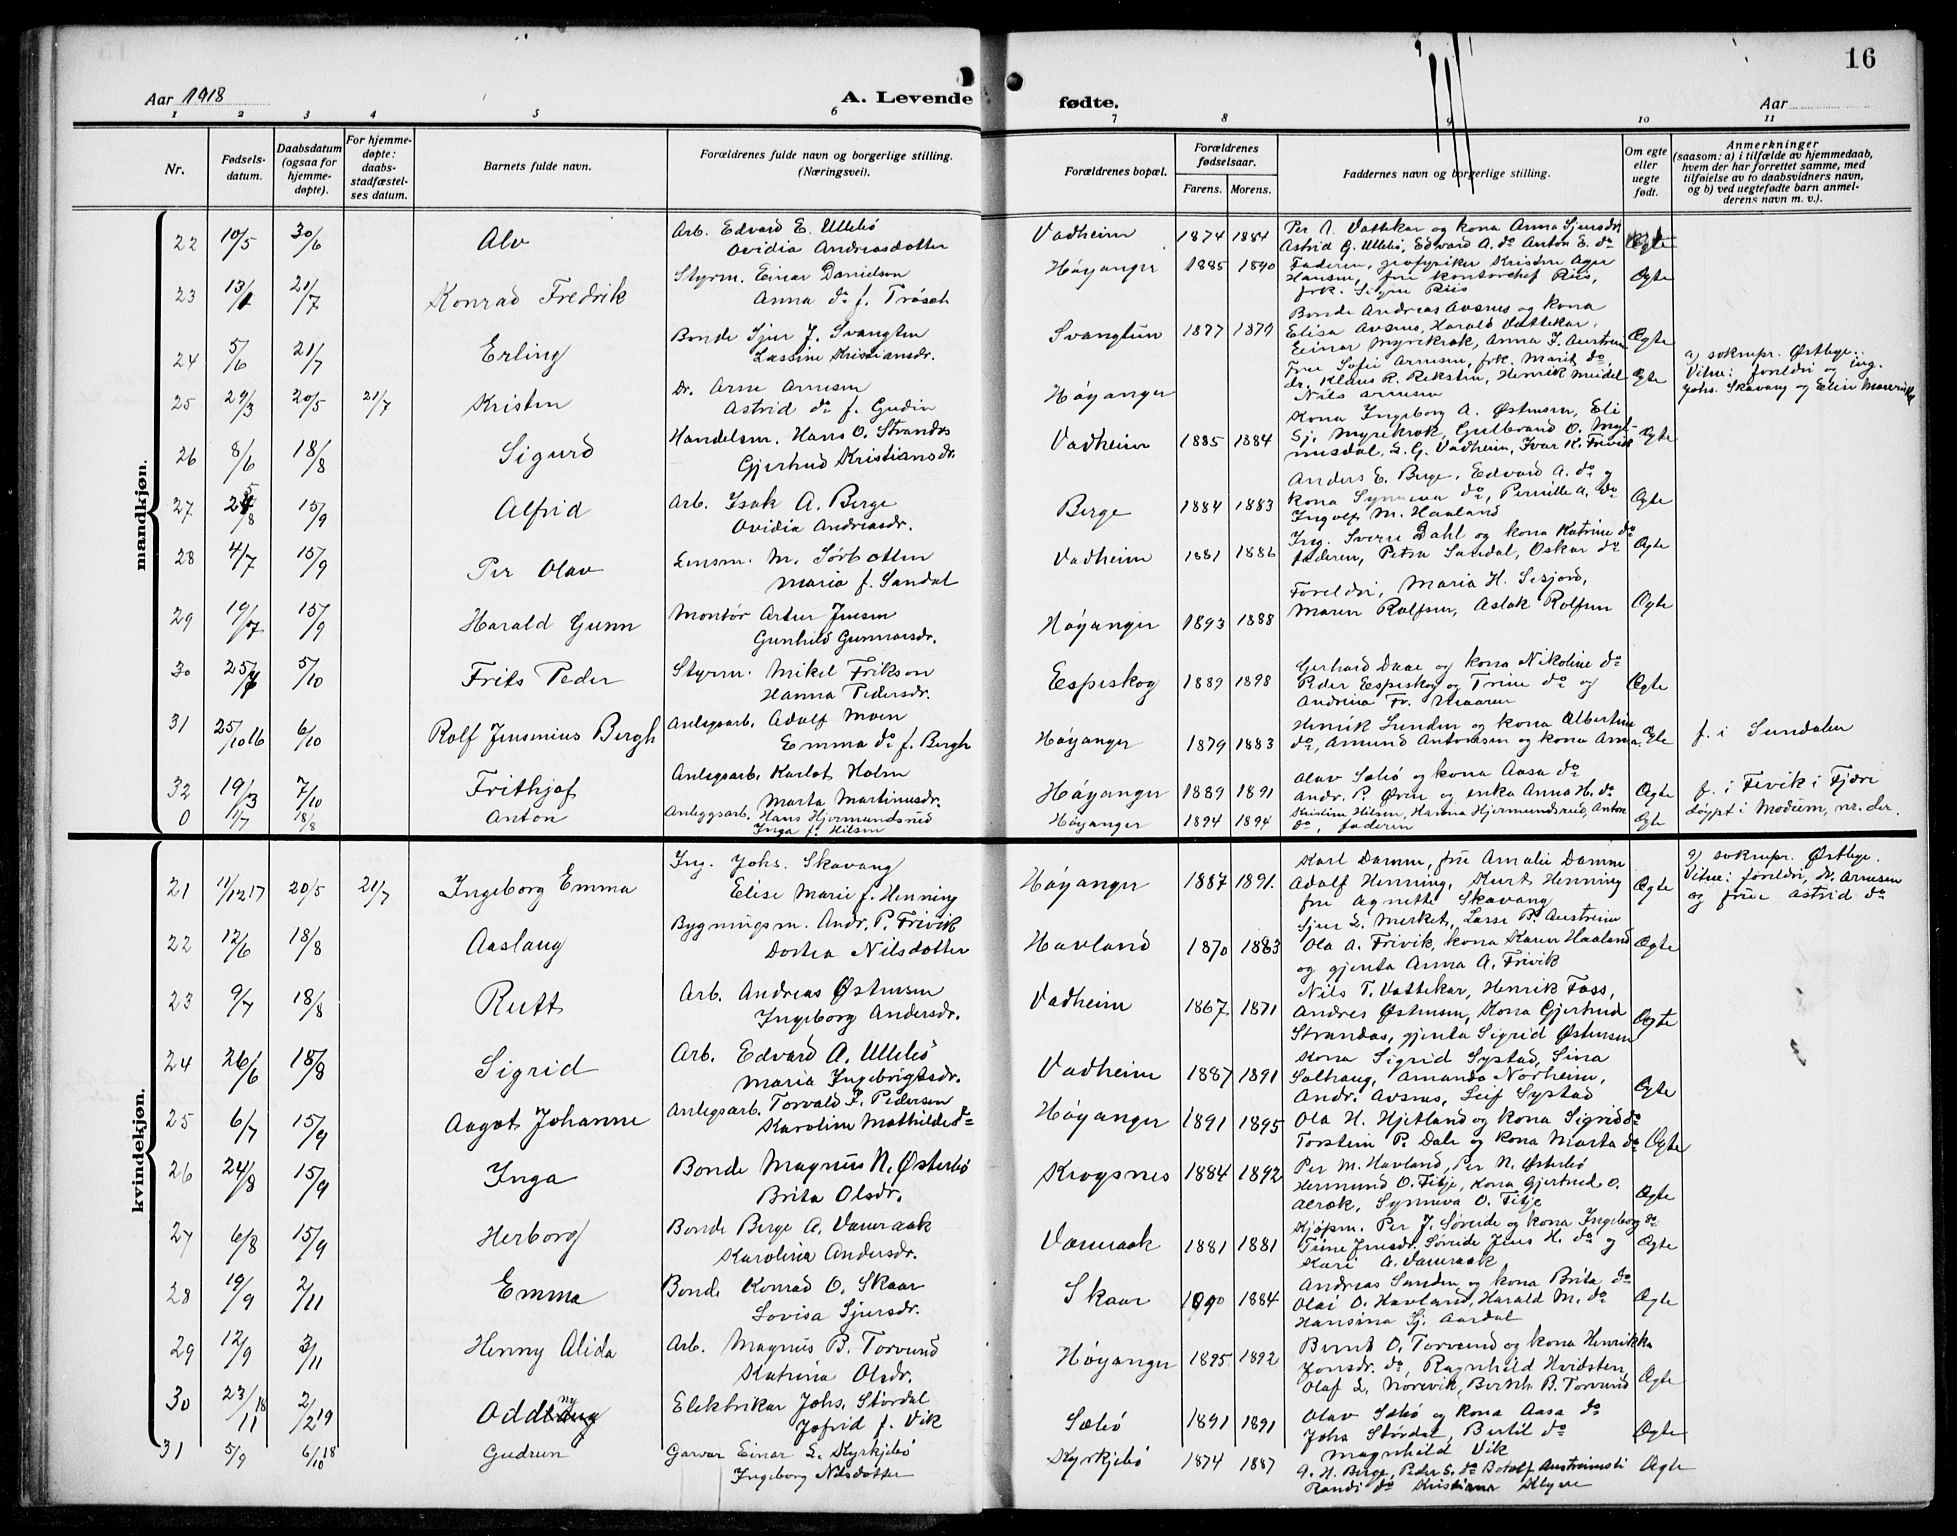 16
Aar 1918
A. Levende fødte.
Aar
1 2 3 4 5 6 7 8 9 10 11
Nr.
Fødsels-
datum.
Daabsdatum
(ogsaa for
hjemme-
døpte).
For hjemme-
døpte:
daabs-
stadfæstel-
ses datum.
Barnets fulde navn.
Forældrenes fulde navn og borgerlige stilling.
(Næringsvei).
Forældrenes bopæl.
Forældrenes
fødselsaar.
Farens. Morens.
Faddernes navn og borgerlige stilling.
Om egte
eller
uegte
født.
Anmerkninger
(saasom: a) i tilfælde av hjemmedaab,
hvem der har forrettet samme, med
tilføielse av to daabsvidners navn,
og b) ved uegtefødte barn anmel-
derens navn m. v.).
mandkjøn.
22 10/5 30/6 Alv Arb. Edvard E. Ullebø
Ovidia Andreasdotter Vadheim 1874 1884 Per A. Vattekar og kona Anna Sjursdtr
Astrid G. Ullebø, Edvard A. do Anton E. do Ægte
23 21/7 Konrad Fredrik Styrm. Einar Danielson
Anna do f. Trösch Høyanger 1885 1890 Faderen, geofysiker Kristen Ager
Hansen, fru kontorchef Riis,
frk. Signe Riis Ægte
24 5/6 21/7 Erling Bonde Sjur J. Svangtun
Lassine Kristiansdr. Svangtun 1877 1879 Bonde Andreas Avsnes og kona
Elisa Avsnes, Harald Vattekar,
Einar Myrekrok, Anna J. Austreim Ægte
25 29/3 20/5 21/7 Kristen Dr. Arne Arnesen
Astrid do f. Gudin Høyanger Fru Sofie Arnesen, frk. Marit do,
dr. Klaus R. Rekstin, Henrik Meidel
Nils Arnesen Ægte a) sokenpr. Østbye.
Vitne: foreldri og ing.
Johs. Skavang og Elise Marie
26 8/6 18/8 Sigurd Handelsm. Hans O. Strandos
Gjertrud Kristiansdr. Vadheim 1885 1884 Kona Ingeborg A. Østensen, Eli
Sj. Myrekrok, Gulbrand O. Myl-
L. G. Vadheim, Ivar K. Frivik Ægte
27 15/9 Alfrid Arb. Isak A. Berge
Ovidia Andreasdr. Berge 1884 1883 Anders E. Berge, Edvard A. do og
kona Synneva do, Pernille A. do
Ingolf M. Haaland Ægte
28 4/7 15/9 Per Olav M. Sørbotten
Maria f. Sandal Vadheim 1881 1886 Ing. Sverre Dahl og kona Katrine do
faderen, Petra Sandal, Oskar do Ægte
29 19/7 15/9 Harald Gunn Montør Artur Jensen
Gunhild Gunnarsdr. Høyanger 1893 1888 Foreldri, Maria H. Sesjord,
Maren Rolfsen, Aslak Rolfsen Ægte
30 5/10 Frits Peder Styrm. Mikel Frikson
Hanna Pedersdr. Espeskog 1889 1898 Gerhard Daae og kona Nikoline do
Peder Espeskog og Trine do og
Andrina Fr. Maaren Ægte
31 25/10 16 6/10 Rolf Jensenius Bergh Anlegsarb. Adolf Moen
Emma do f. Bergh Høyanger 1879 1883 Henrik Lunden og kona Albertine
do, Amund Antonsen og kona Anna Ægte f. i Sundalen
32 19/3 7/10 Frithjof Anlegsarb. Karlot Holm
Marta Martinusdr. Høyanger 1889 1891 Olav Sæbø og kona Aasa do
Andr. P. Øren og enka Anna H. do Ægte f. i Fevik i Fjære
0 11/7 18/8 Anton Anleggsarb. Hans Hjermundsrud
Inga f. Hilsen Høyanger 1894 1894 Kristine Hilsen, Hanna Hjermundsrud, Anton
do, faderen Ægte døypt i Modum, nr. der.
kvindekjøn.
21 11/12 17 20/5 21/7 Ingeborg Emma Ing. Johs. Skavang
Elise Marie f. Henning Høyanger 1887 1891. Karl Damm, frue Amalie Damm
Adolf Henning, Kurt Henning
fru Agnette Skavang Ægte a) sokenpr. Østbye.
Vitne: foreldri, dr. Arnesen
og frue Astrid do
22 12/6 18/8 Aaslaug Bygningsm. Andr. P. Frivik
Dortea Nilsdotter Havland 1870 1883 Sjur L. Merket, Lasse P. Austreim
Ola A. Frivik, kona Karen Haaland
og gjenta Anna A. Frivik Ægte
23 9/7 18/8 Rutt Arb. Andreas Østensen
Ingeborg Andersdr. Vadheim 1867 1871 Nils T. Vattekar, Henrik Foss,
Andres Østensen, kona Gjertrud
Strandos, gjenta Sigrid Østensen Ægte
24 26/6 18/8 Sigrid Arb. Edvard A. Ullebø
Maria Ingebrigtsdr. Vadheim 1887 1891 Kona Sigrid Systad, Sina
Solhaug, Amanda Norheim,
Andr. Avsnes, Leif Systad Ægte
25 6/7 15/9 Aagot Johanne Anlegsarb. Torvald J. Pedersen
Karoline Mathilde do Høyanger 1891 1895 Ola H. Hjetland og kona Sigrid do
Torstein P. Dale og kona Marta do Ægte
26 24/8 15/9 Inga Bonde Magnus N. Østerbø
Brita Olsdr. Krogsnes 1884 1892 Per M. Havland, Per N. Østerbø
Hermund O. Fitje, kona Gjertrud O.
Synneva O. Fitje Ægte
27 6/8 15/9 Herborg Bonde Berge A. Væneraak
Karolina Andersdr. Væneraak 1881 1881 Kjøpm. Per J. Søreide og kona Ingeborg do
Trine Jensdr. Søreide Jens H. do og
Kari A. Væneraak Ægte
28 19/9 2/11 Emma Bonde Konrad O. Skaar
Lovisa Sjursdr. Skaar 1890 1884 Andreas Sanden og kona Brita do
Olai O. Havland, Harald M. do
Hansina Sj. Aardal Ægte
29 12/9 3/11 Henny Alida Arb. Magnus B. Torvund
Katrina Olsdr. Høyanger 1895 1892 Bernt O. Torvund og kona Henrikka
Jonsdr. do, Ragnhild Hvidsten
Olaf L. Nørevik, Bernh. B. Torvund Ægte
30 23/11 18 2/2 19 Oddny Elektrikar Johs. Størdal
Jofrid f. Vik Sæbø 1891 1891 Olav Sæbø og kona Aasa do
Johs Størdal, Bertil do
Magnhild Vik Ægte
31 5/9 6/10 18 Gudrun Garvar Einar L. Kyrkjebø
Ingeborg Nilsdotter Kyrkjebø 1874 1887 A. H. Berge, Peder S. do Botolf Austreim
Randi do Kristiana Klyve Ægte